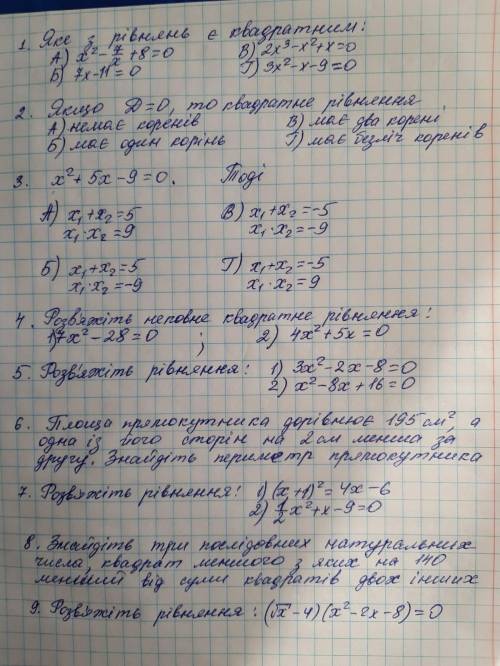 1. Яке з рівнянь є квадратним:
А) x² - 7/x + 8 = 0 В) 2x³ - x² + x = 0
Б) 7x - 11 = 0 Г) 3x² - x - 9 = 0
2. Якщо D = 0, то квадратне рівняння
А) немає коренів В) має два корені
Б) має один корінь Г) має безліч коренів
3. x² + 5x - 9 = 0. Тоді
А) x₁ + x₂ = 5 В) x₁ + x₂ = -5
x₁ · x₂ = 9 x₁ · x₂ = -9
Б) x₁ + x₂ = 5 Г) x₁ + x₂ = -5
x₁ · x₂ = -9 x₁ · x₂ = 9
4. Розвяжіть неповне квадратне рівняння:
1) 7x² - 28 = 0 ; 2) 4x² + 5x = 0
5. Розв'яжіть рівняння: 1) 3x² - 2x - 8 = 0
2) x² - 8x + 16 = 0
6. Площа прямокутника дорівнює 195 см², а
одна із його сторін на 2 см менша за
другу. Знайдіть периметр прямокутника
7. Розв'яжіть рівняння: 1) (x + 1)² = 4x - 6
2) 1/2 x² + x - 9 = 0
8. Знайдіть три послідовних натуральних
числа, квадрат меншого з яких на 140
менший від суми квадратів двох інших
9. Розв'яжіть рівняння: (√x - 4)(x² - 2x - 8) = 0